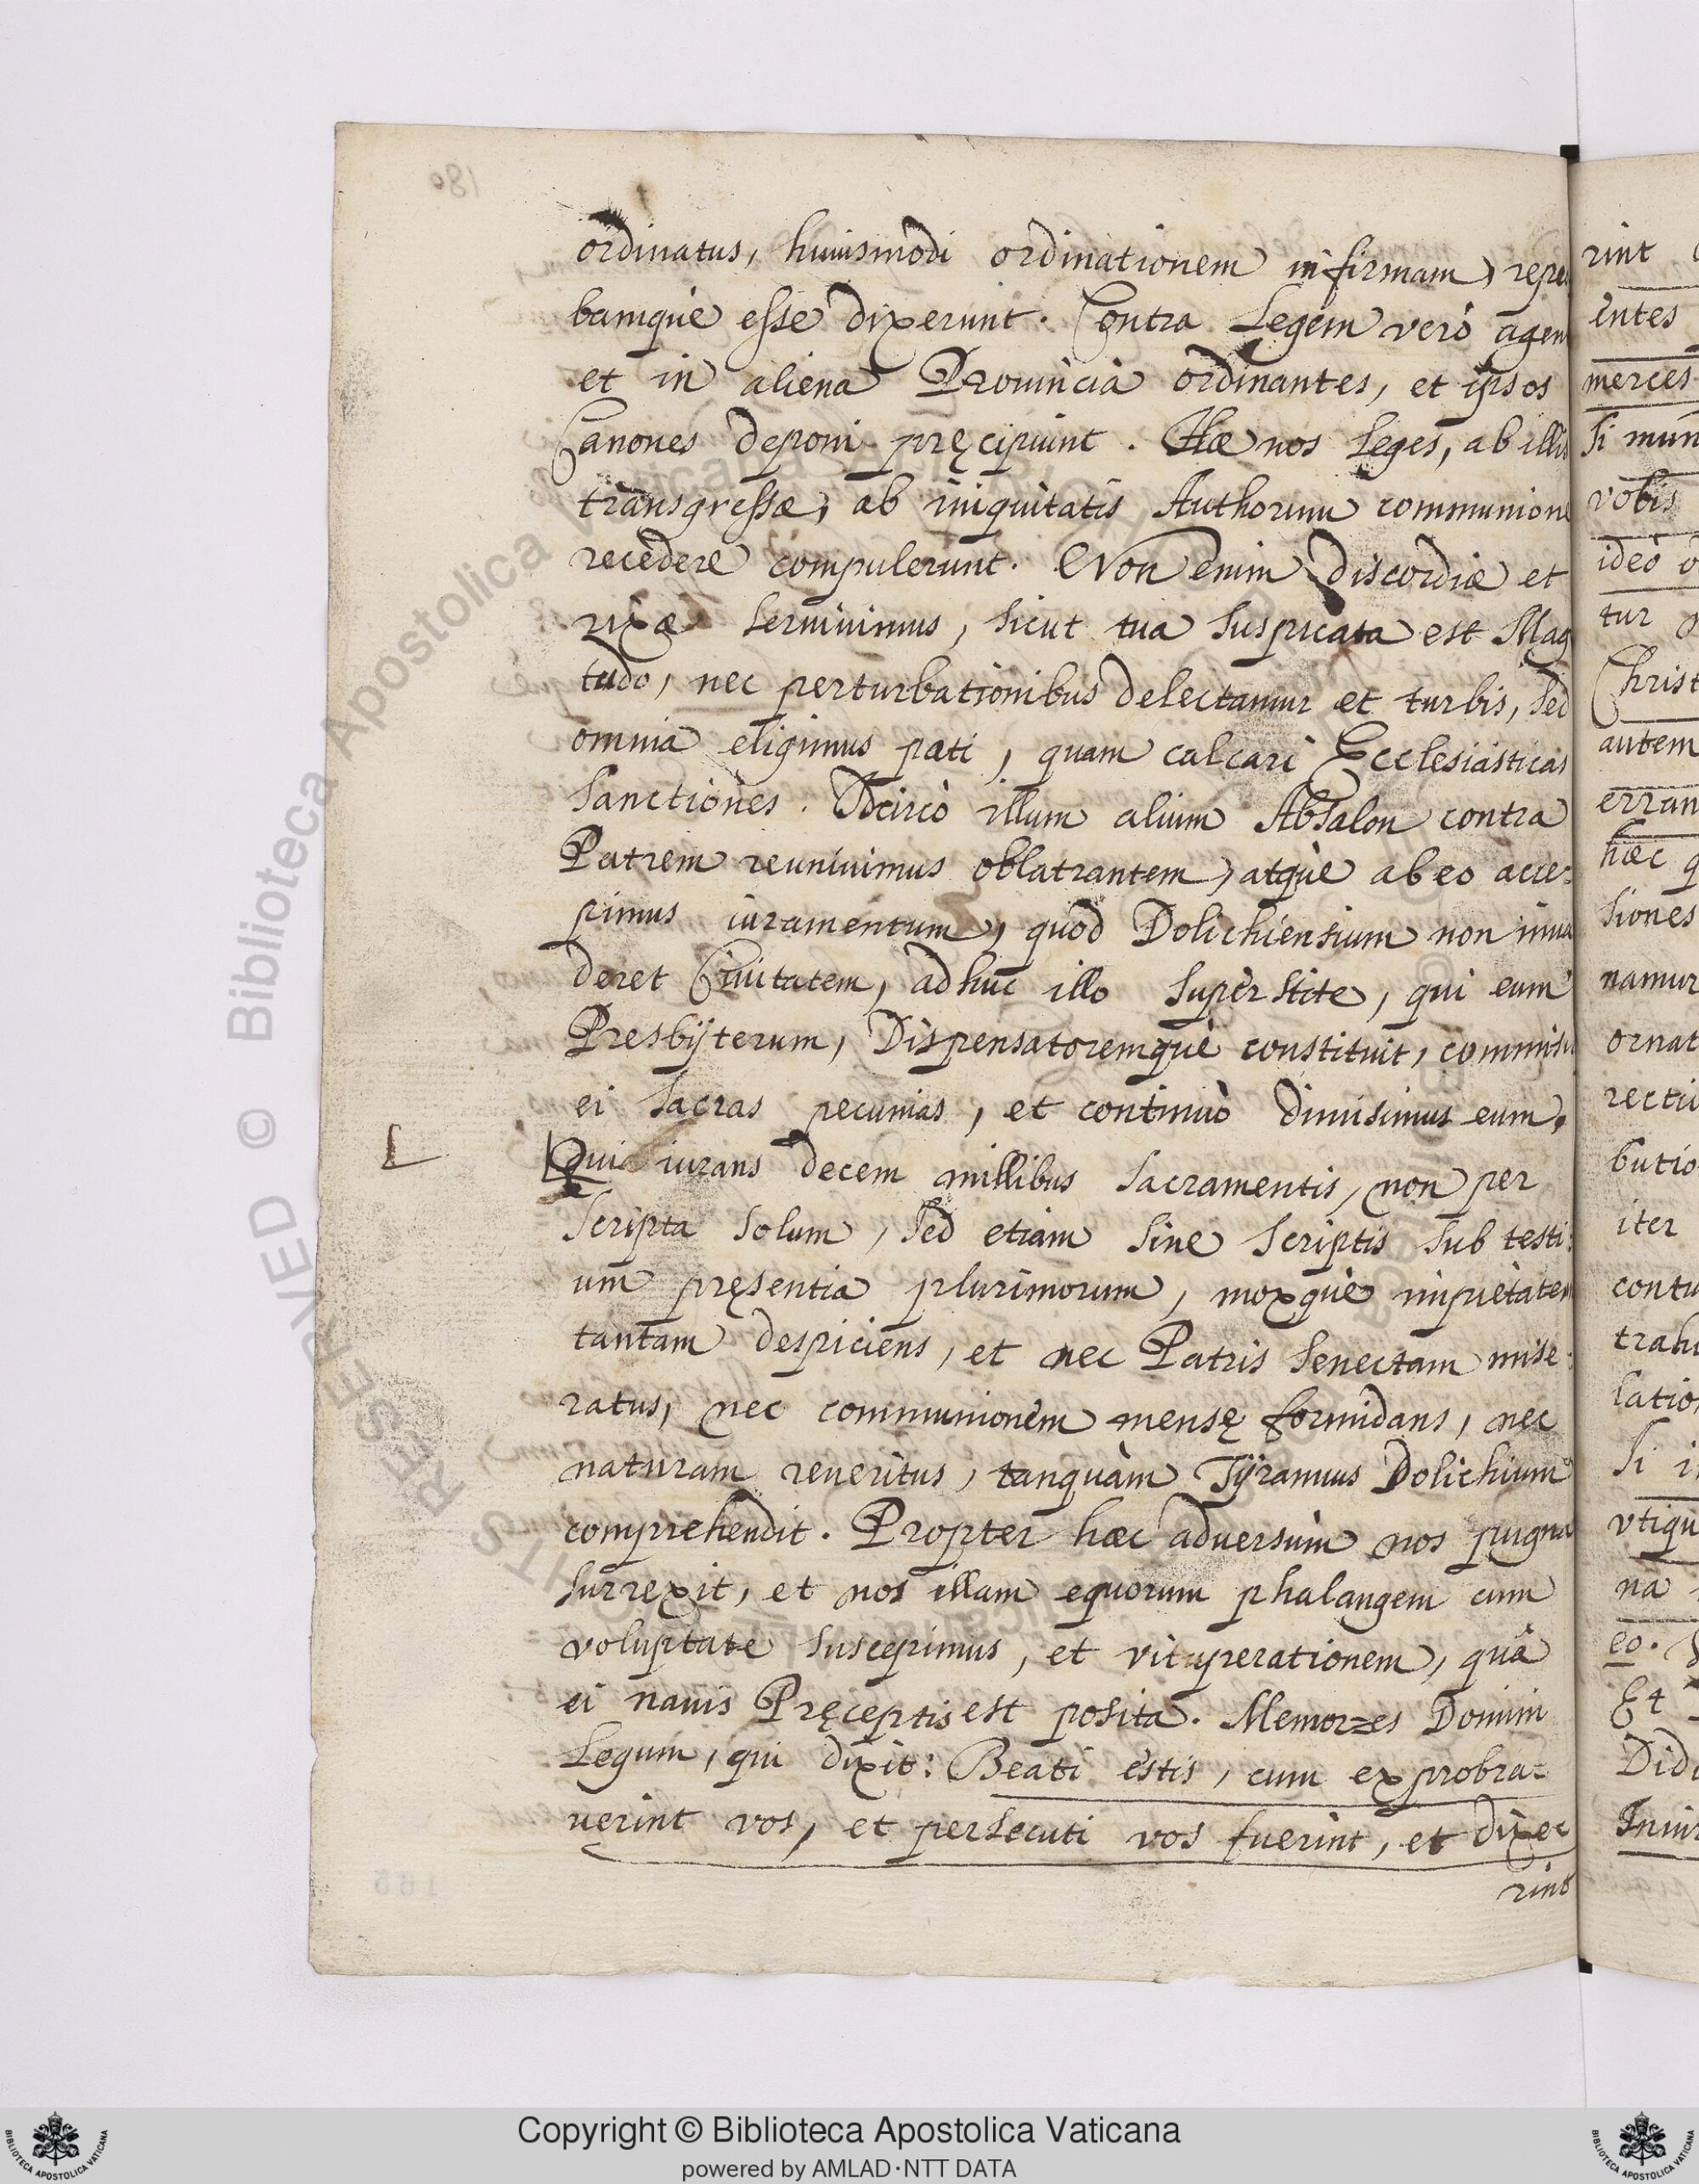 ordinatus, huiusmodi ordinationem infirmam, repro
bamque esse dixerunt. Contra Legem verò agen
et in aliena Prouincia ordinantes, et ipsos
Canones deponi pręcipiunt. Hæ nos Leges, ab illis
transgressæ, ab iniquitatis Authorum communione
recedere compulerunt. Non enim discordiæ et
rixæ seruiuimus, sicut tua suspicata est Mag
tudo, nec perturbationibus delectamur et turbis, sed
omnia eligimus pati, quam calcari Ecclesiasticas
sanctiones. Idcircò illum alium Absalon contra
Patrem reuniuimus oblatrantem, atque ab eo acce=
pimus iuramentum, quod Dolichiensium non inua
deret Ciuitatem, adhuc illo superstite, qui eum
Presbÿterum, Dispensatoremque constituit, commisi
ei sacras pecunias, et continuò dimisimus eum.
L
Qui iurans decem millibus sacramentis, non per
scripta solum, sed etiam sine scriptis sub testi=
um pręsentia plurimorum, moxque impietatem
tantam despiciens, et nec Patris senectam mise=
ratus, nec communionem mensę formidans, nec
naturam reueritus, tanquàm Tÿrannus Dolichium
comprehendit. Propter hæc aduersùm nos pugna
surrexit, et nos illam equorum phalangem cum
voluptate suscepimus, et vituperationem, quâ
ei nauis Pręceptis est posita. Memores Domini
Legum, qui dixit: Beati estis, cum exprobra=
uerint vos, et persecuti vos fuerint, et dixe
rint
180
165
rint
entes
merces
si mun
vobis
ideò
tur
Christ
autem
erran
hæc q
siones
namur
ornat
rectiu
butio
iter
contu
trahu
latio
si i
vtiqu
na
eo.
Et
Didi
© Biblioteca Apostolica Vaticana
RESERVED
Copyright © Biblioteca Apostolica Vaticana
powered by AMLAD·NTT DATA
BIBLIOTECA APOSTOLICA VATICANA
BIBLIOTECA APOSTOLICA VATICANA